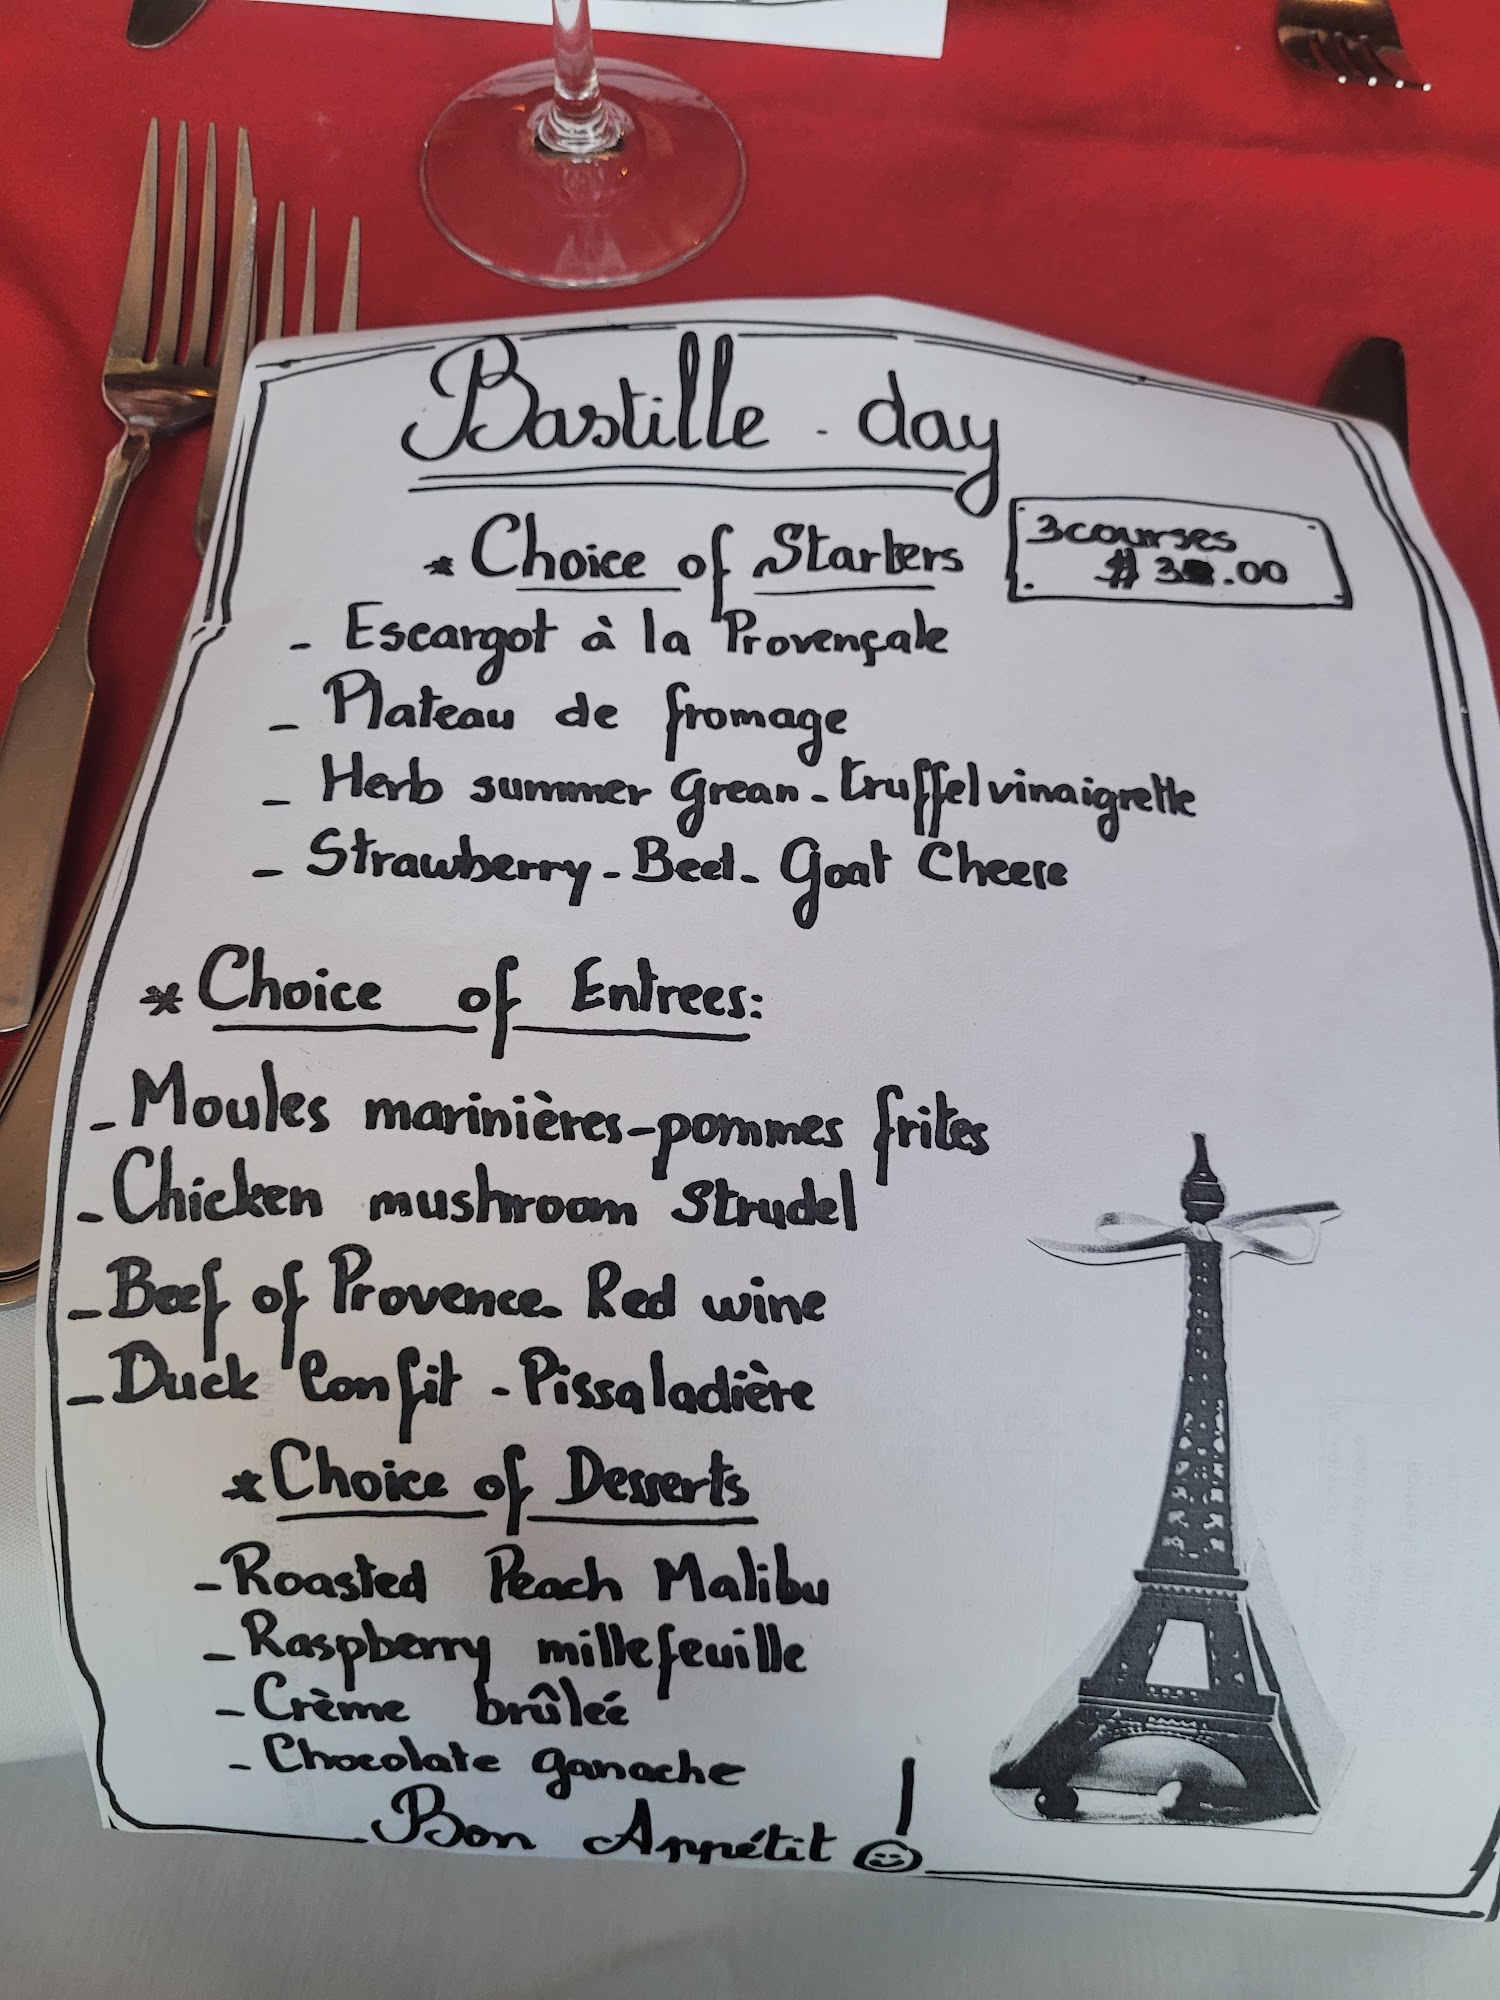 Bastille day
* Choice of Starters
3 courses
$ 3 .00
- Escargot à la Provençale
- Plateau de fromage
- Herb summer Grean - truffel vinaigrette
- Strawberry - Beet - Goat Cheese
* Choice of Entrees:
- Moules marinières - pommes frites
- Chicken mushroom Strudel
- Beef of Provence - Red wine
- Duck Confit - Pissaladière
* Choice of Desserts
- Roasted Peach Malibu
- Raspberry millefeuille
- Crème brûleé
- Chocolate ganache
Bon Appétit !